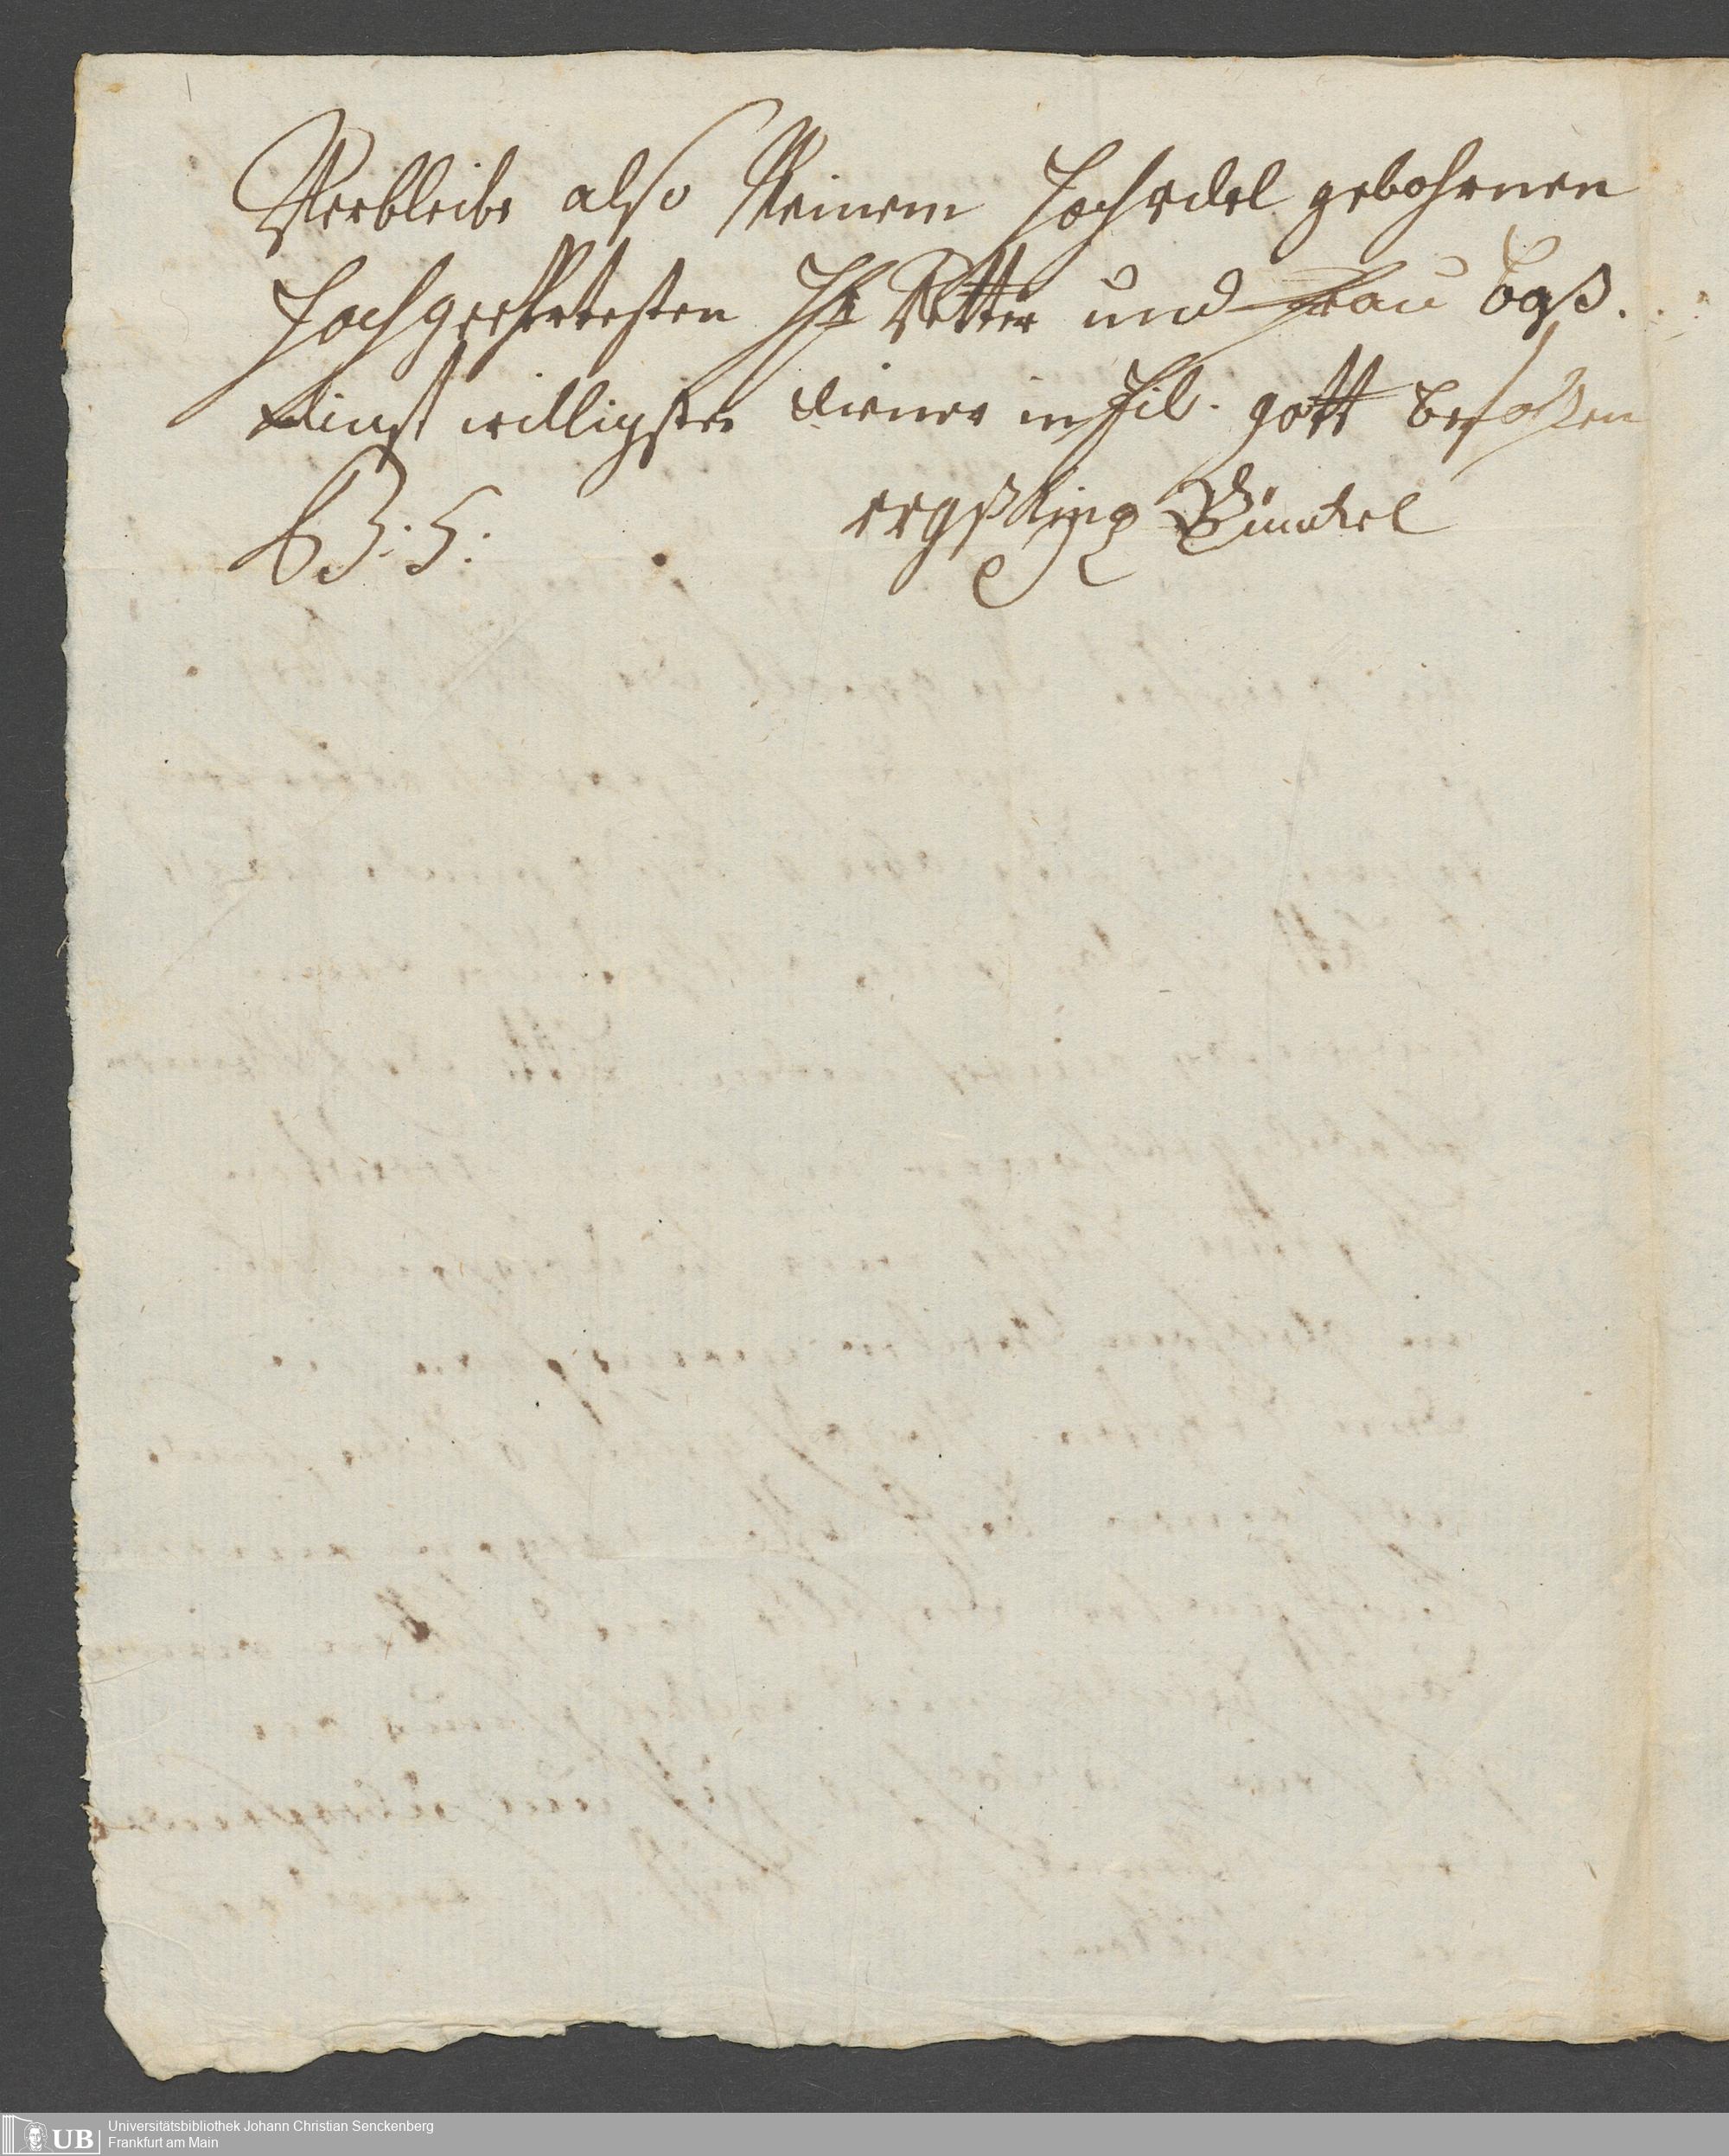 Verbleibe also Meinem Hochedel gebohrnen
Hochgeehrtesten Hr Vetter und Frau Bahs.
dinst willigster diener in Hil. gott befohlen
Bünckel
B: S:
UB Universitätsbibliothek Johann Christian Senckenberg
Frankfurt am Main